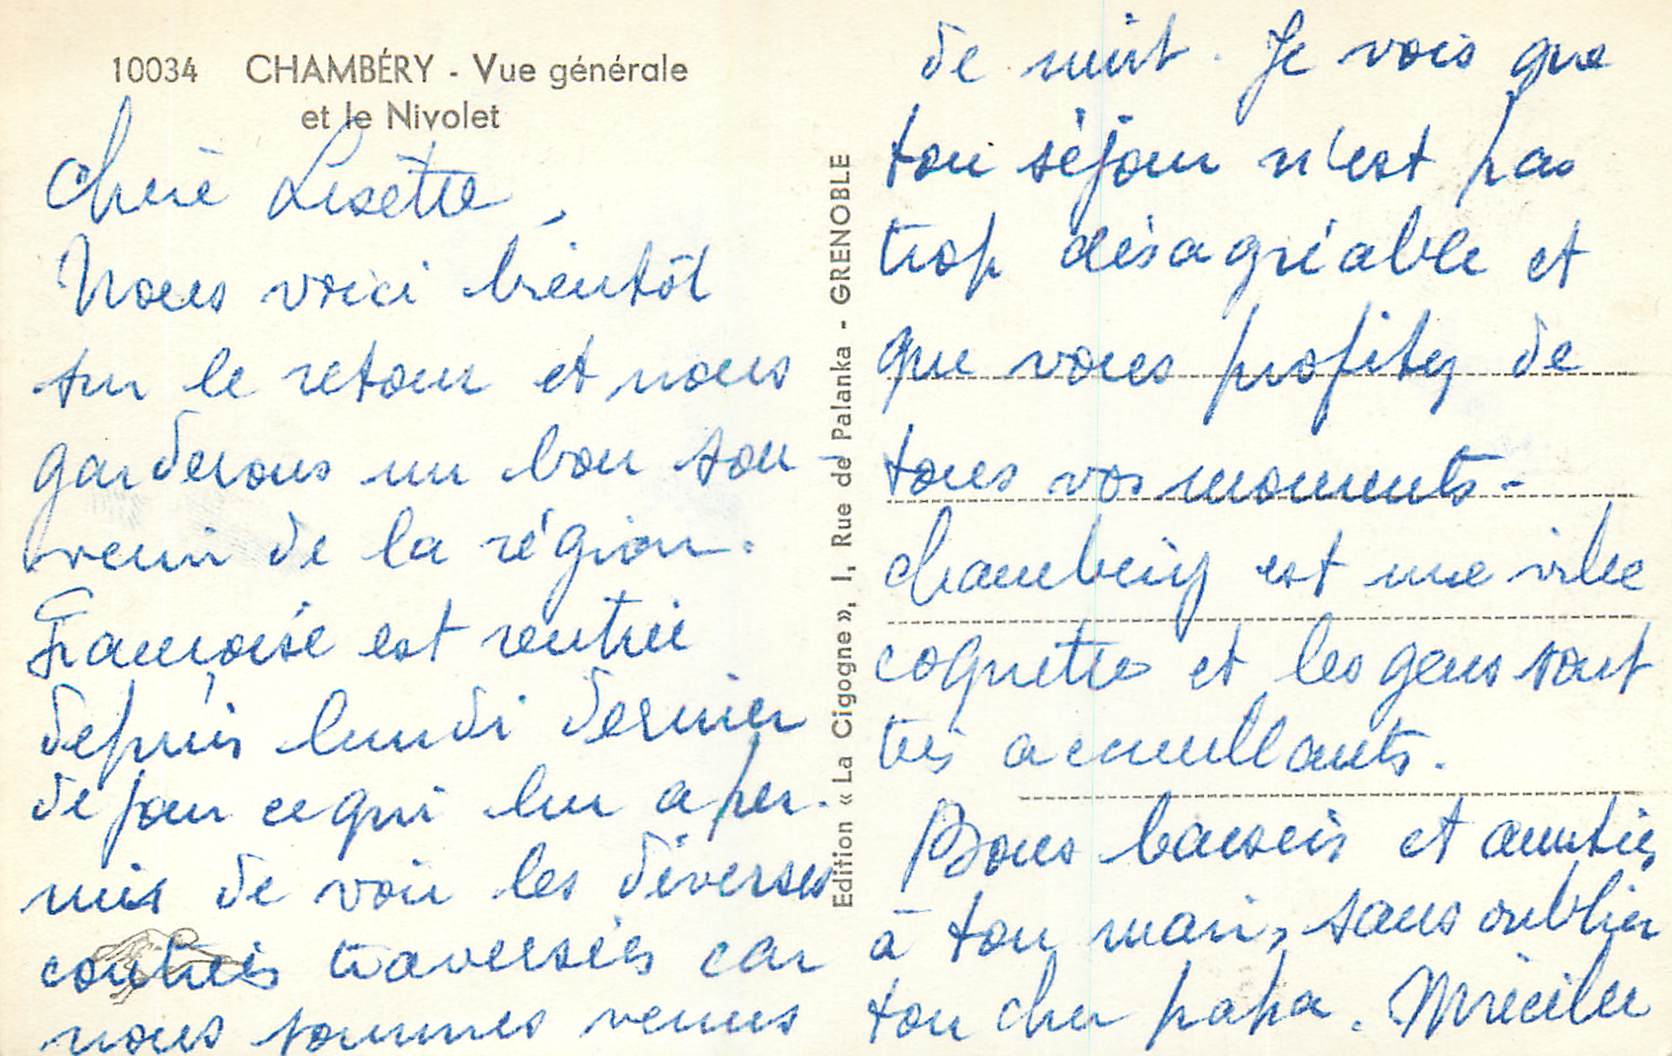 10034 CHAMBÉRY - Vue générale
et le Nivolet
Chère Lisette,
Nous voici bientôt
sur le retour et nous
garderons un bon sou-
venir de la région.
Françoise est rentrée
depuis lundi dernier
de jour ce qui lui a per-
mis de voir les diverses
contrées traversées car
nous sommes venus
Edition « La Cigogne », 1, Rue de Palanka - GRENOBLE
de nuit. Je vois que
ton séjour n'est pas
trop désagréable et
que vous profitez de
tous vos moments -
Chambéry est une ville
coquette et les gens sont
très accueillants.
Bons baisers et amitiés
à ton mari, sans oublier
ton cher papa. Mireille